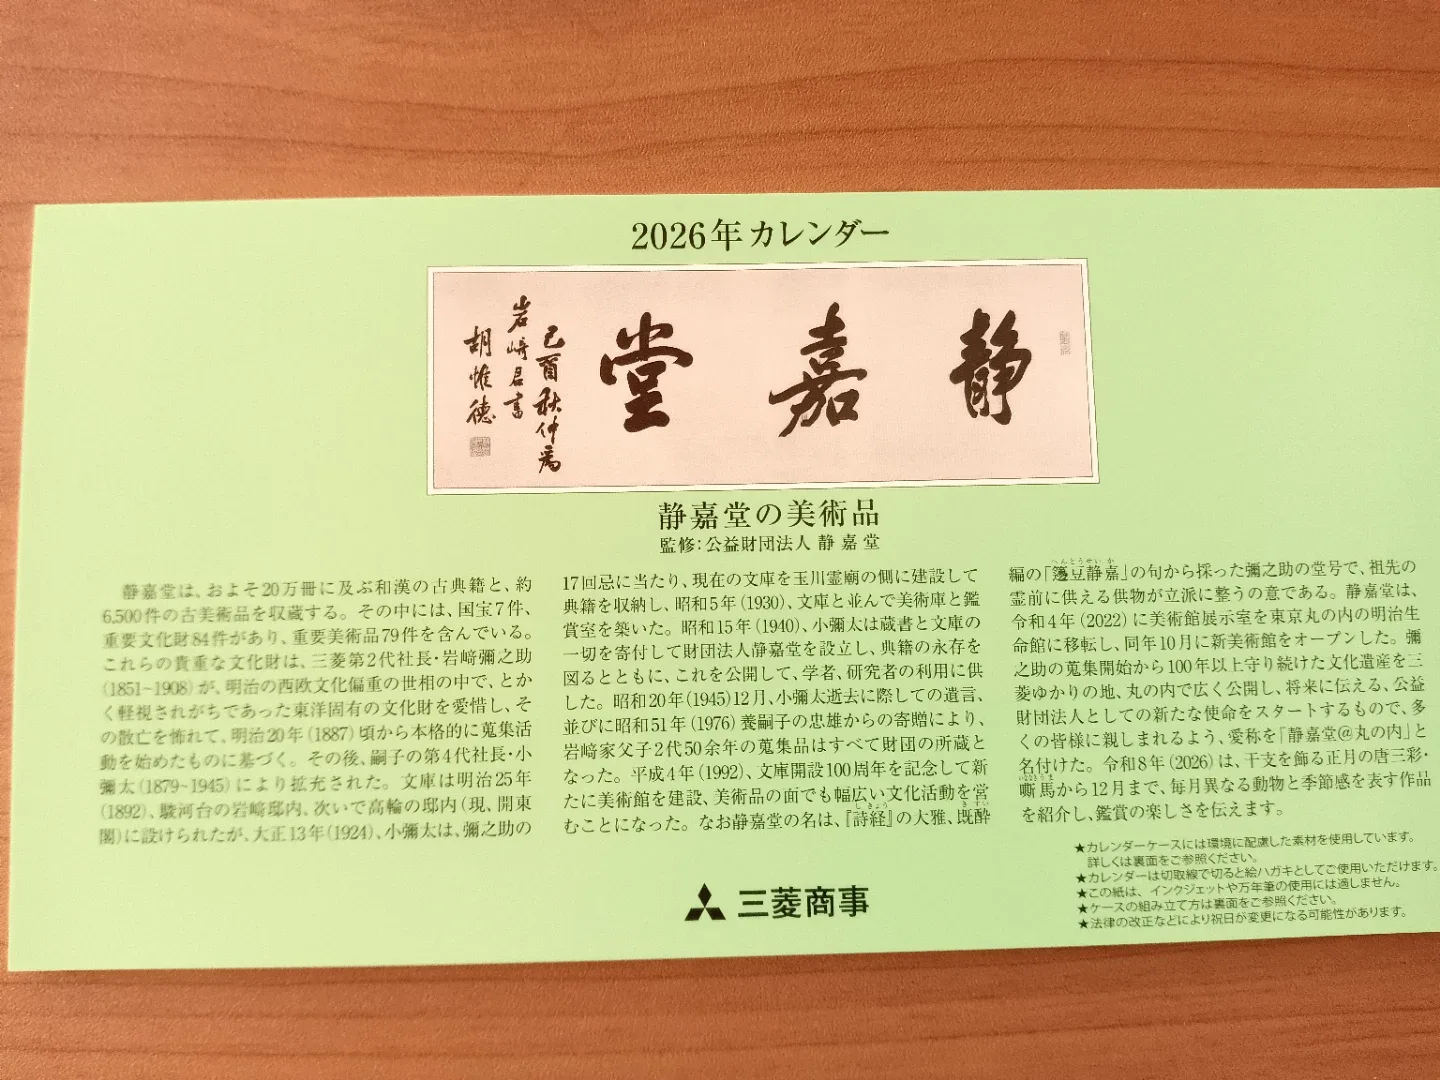 2026年カレンダー
静嘉堂
己酉秋仲為
岩﨑君書
胡惟德
静嘉堂の美術品
監修：公益財団法人 静嘉堂
静嘉堂は、およそ20万冊に及ぶ和漢の古典籍と、約
6,500件の古美術品を収蔵する。その中には、国宝7件、
重要文化財84件があり、重要美術品79件を含んでいる。
これらの貴重な文化財は、三菱第2代社長・岩﨑彌之助
(1851~1908)が、明治の西欧文化偏重の世相の中で、とか
く軽視されがちであった東洋固有の文化財を愛惜し、そ
の散亡を怖れて、明治20年(1887)頃から本格的に蒐集活
動を始めたものに基づく。その後、嗣子の第4代社長・小
彌太(1879~1945)により拡充された。文庫は明治25年
(1892)、駿河台の岩﨑邸内、次いで高輪の邸内(現、開東
閣)に設けられたが、大正13年(1924)、小彌太は、彌之助の
17回忌に当たり、現在の文庫を玉川霊廟の側に建設して
典籍を収納し、昭和5年(1930)、文庫と並んで美術庫と鑑
賞室を築いた。昭和15年(1940)、小彌太は蔵書と文庫の
一切を寄付して財団法人静嘉堂を設立し、典籍の永存を
図るとともに、これを公開して、学者、研究者の利用に供
した。昭和20年(1945)12月、小彌太逝去に際しての遺言、
並びに昭和51年(1976)養嗣子の忠雄からの寄贈により、
岩﨑家父子2代50余年の蒐集品はすべて財団の所蔵と
なった。平成4年(1992)、文庫開設100周年を記念して新
たに美術館を建設、美術品の面でも幅広い文化活動を営
しきょう きすい
むことになった。なお静嘉堂の名は、『詩経』の大雅、既酔
へんとうせいか
編の「籩豆静嘉」の句から採った彌之助の堂号で、祖先の
霊前に供える供物が立派に整うの意である。静嘉堂は、
令和4年(2022)に美術館展示室を東京丸の内の明治生
命館に移転し、同年10月に新美術館をオープンした。彌
之助の蒐集開始から100年以上守り続けた文化遺産を三
菱ゆかりの地、丸の内で広く公開し、将来に伝える、公益
財団法人としての新たな使命をスタートするもので、多
くの皆様に親しまれるよう、愛称を「静嘉堂@丸の内」と
名付けた。令和8年(2026)は、干支を飾る正月の唐三彩・
いななきうま
嘶馬から12月まで、毎月異なる動物と季節感を表す作品
を紹介し、鑑賞の楽しさを伝えます。
★カレンダーケースには環境に配慮した素材を使用しています。
詳しくは裏面をご参照ください。
★カレンダーは切取線で切ると絵ハガキとしてご使用いただけます。
★この紙は、インクジェットや万年筆の使用には適しません。
★ケースの組み立て方は裏面をご参照ください。
★法律の改正などにより祝日が変更になる可能性があります。
三菱商事